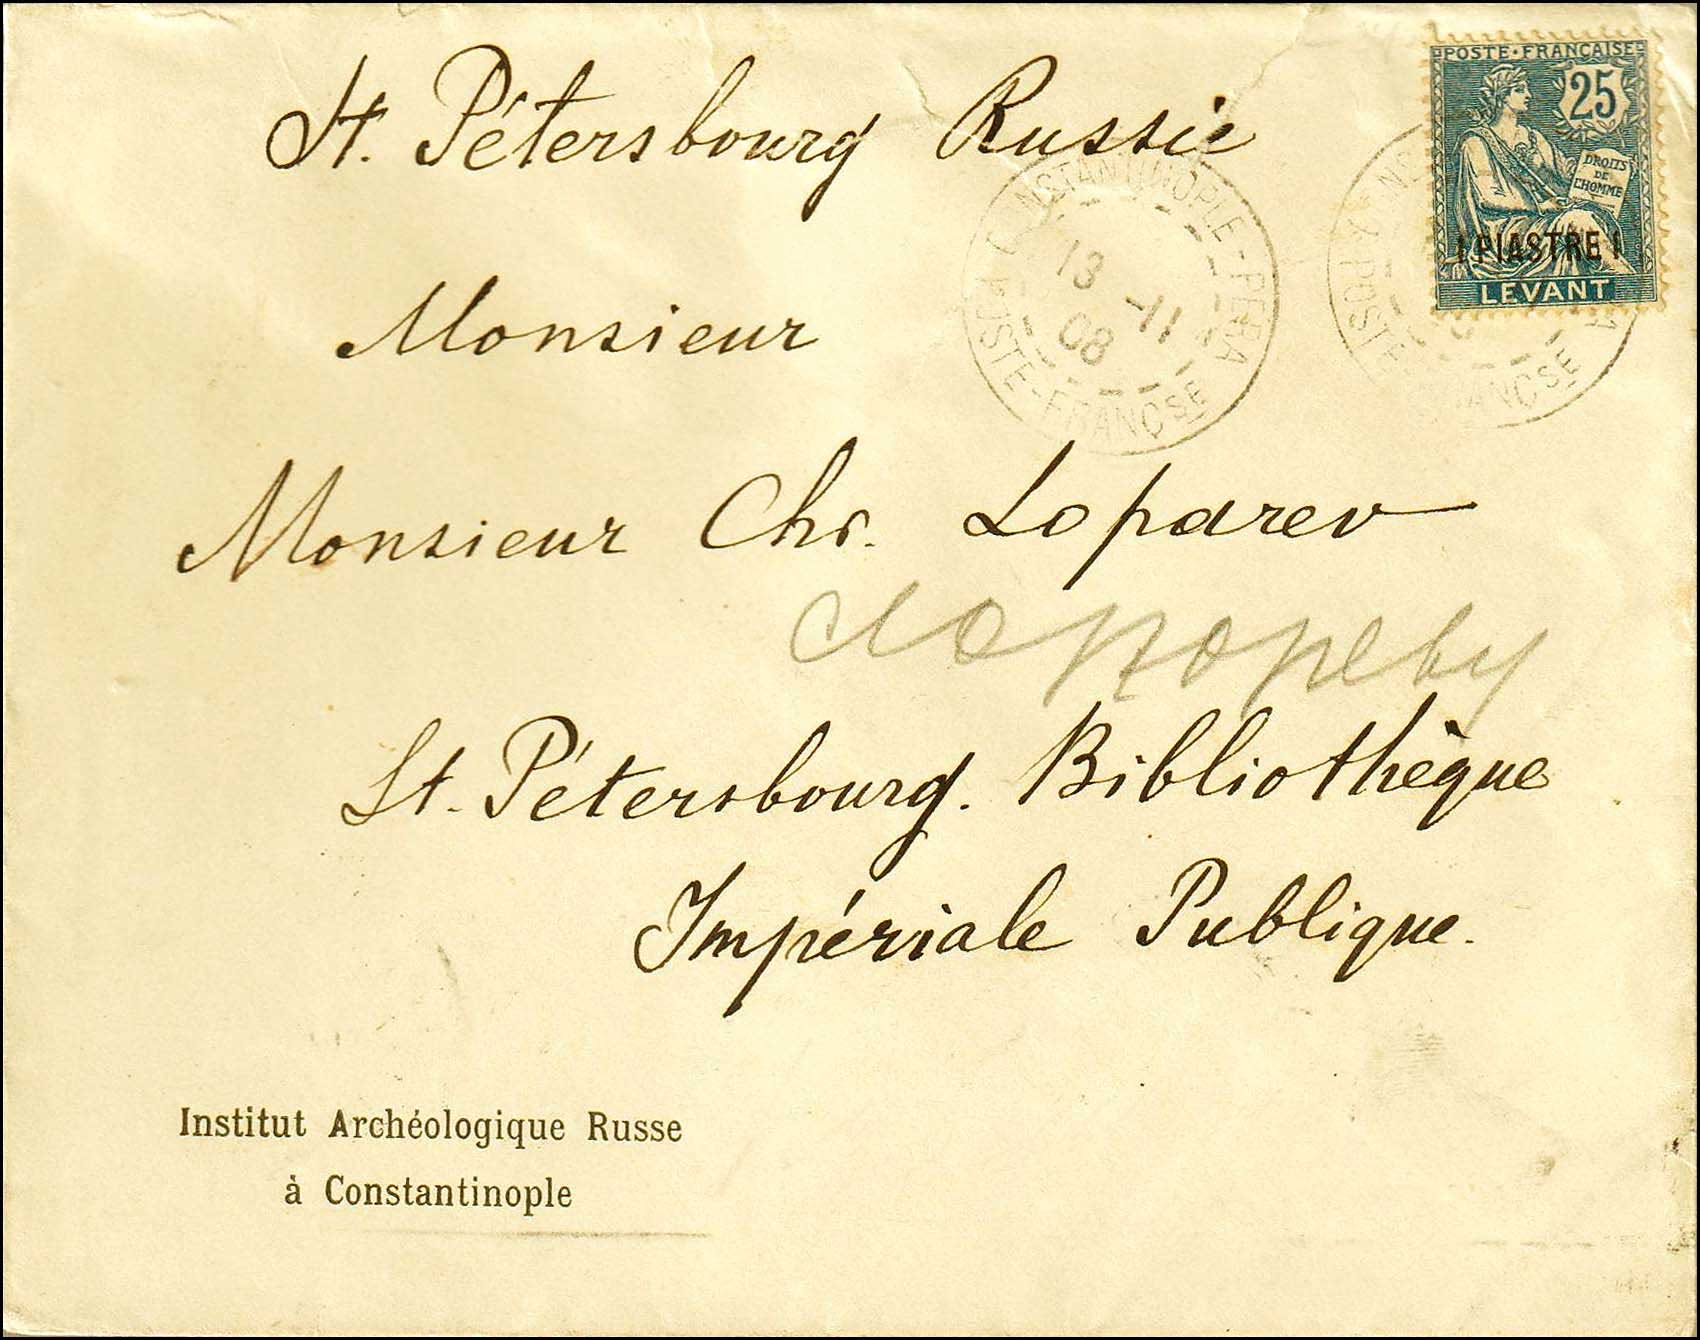 St. Pétersbourg Russie
POSTE • FRANÇAISE
25
DROITS
DE
L'HOMME
1 PIASTRE 1
LEVANT
CONSTANTINOPLE-PERA
13 -11
08
POSTE-FRANÇSE
POSTE FRANÇSE
Monsieur
Monsieur Chr. Loparev
Лопареву
St. Pétersbourg. Bibliothèque
Impériale Publique.
Institut Archéologique Russe
à Constantinople